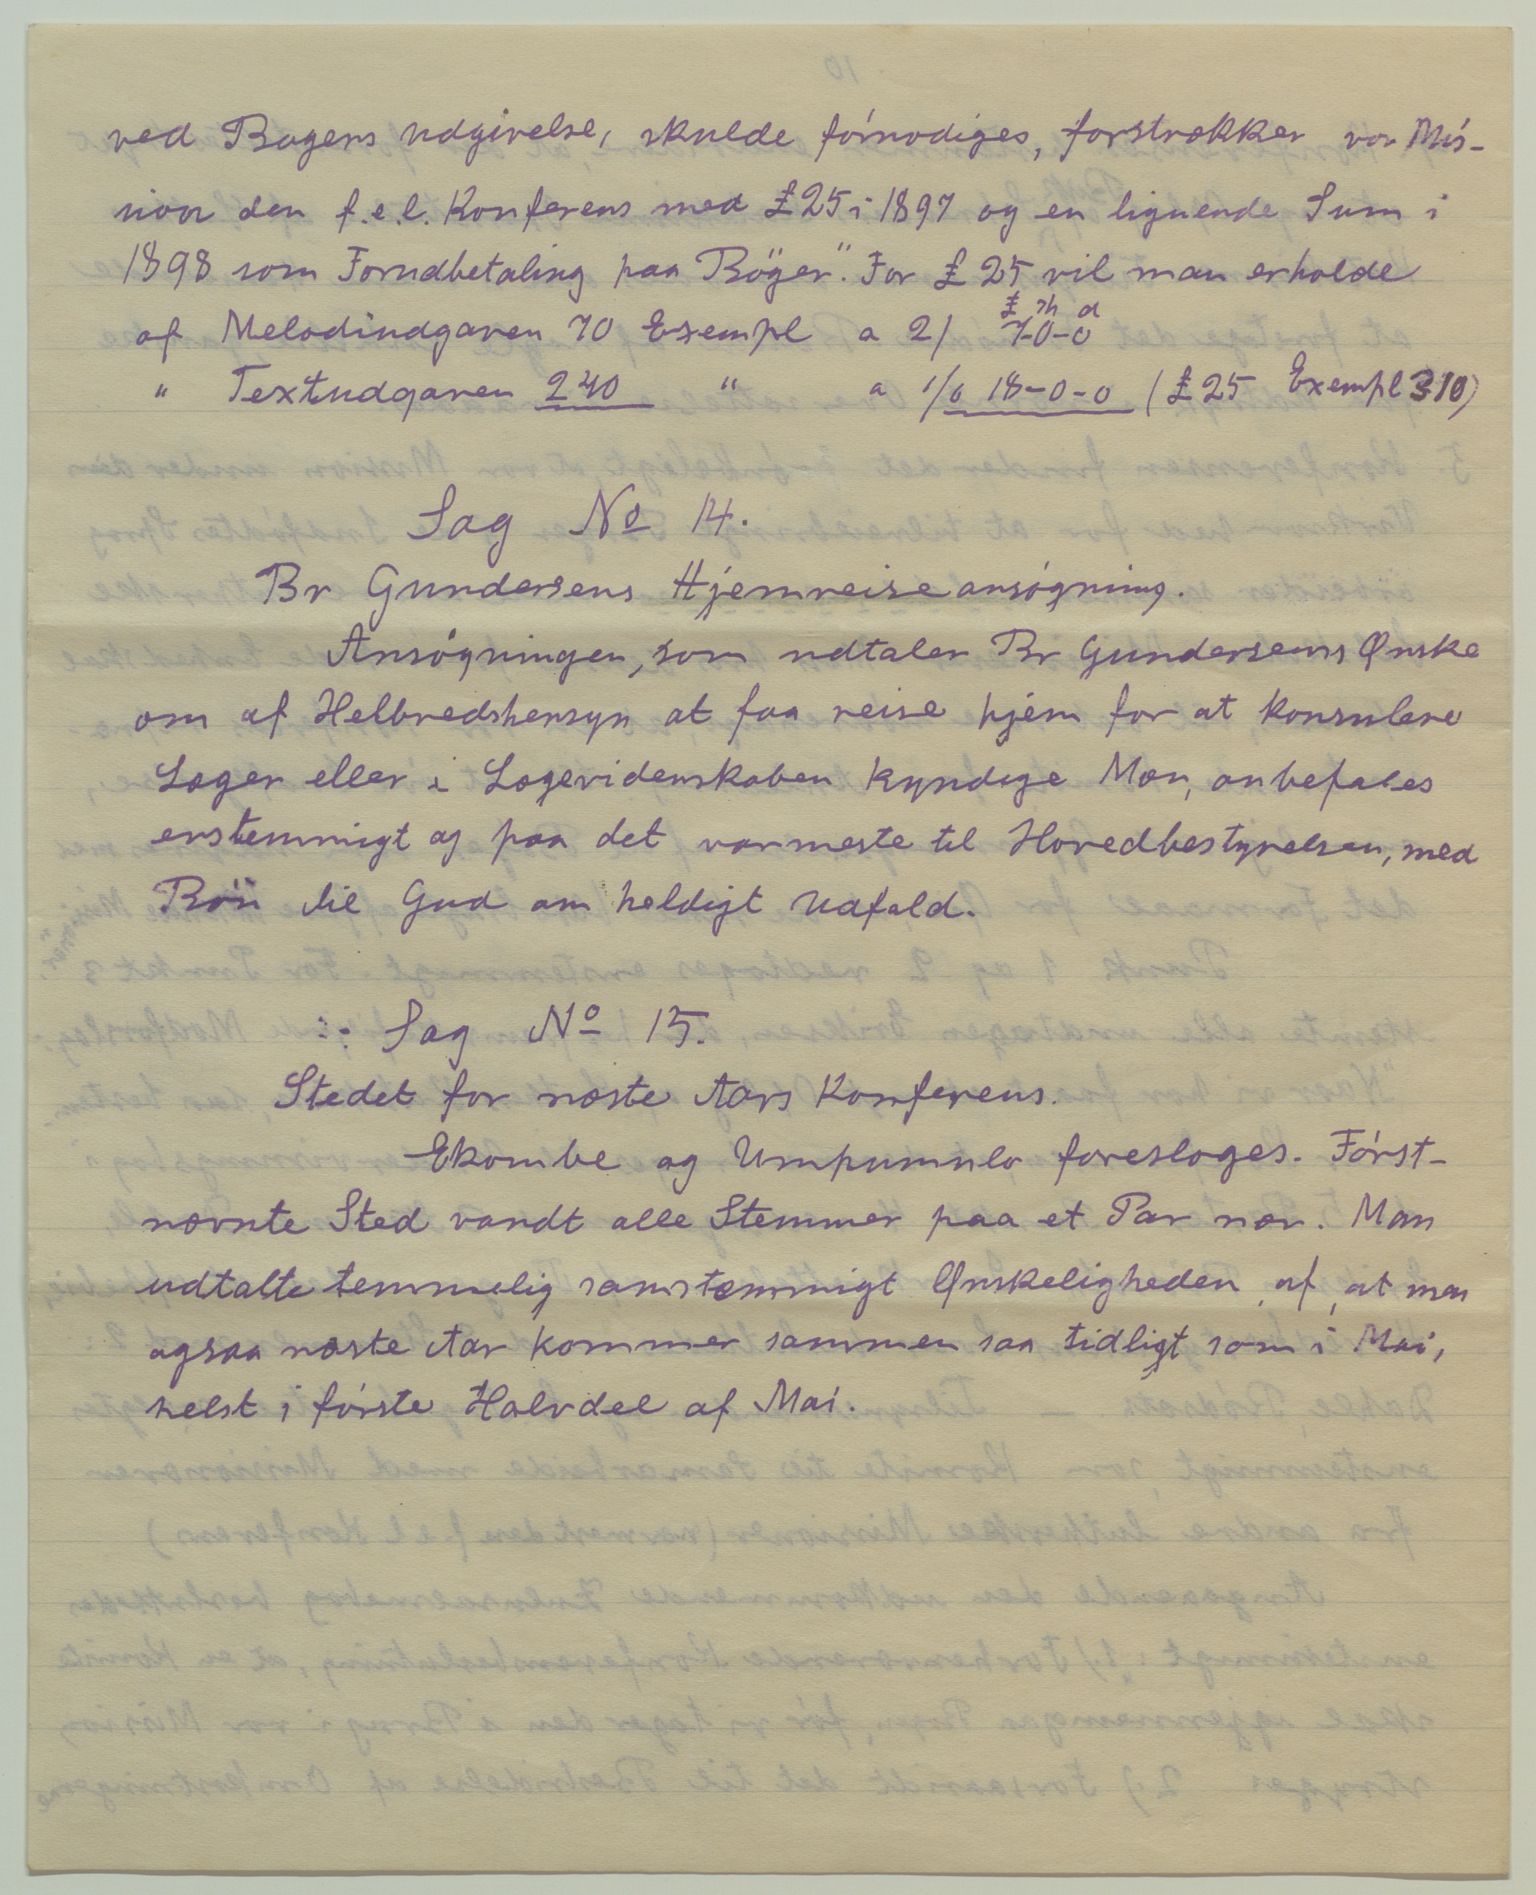 ved Bogens Udgivelse, skulde fórnødiges, forstrækker vor Mis-
sion den f.e.l. Konferens med £25 i 1897 og en lignende Sum i
1898 som Forudbetaling paa Böger". For £ 25 vil man erholde
£ sh d
af Melodiudgaven 70 Exempl a 2/ 7-0-0
" Textudgaven 240 " a 1/6 18-0-0 (£25 Exempl 310)
Sag No 14.
Br Gundersens Hjemreiseansógning.
Ansógningen, som udtaler Br Gundersens Ønske
om af Helbredshensyn at faa reise hjem for at konsulere
Læger eller i Lægevidenskaben kyndige Mæn, anbefales
enstemmigt og paa det varmeste til Hovedbestyrelsen, med
Bön til Gud om heldigt Udfald.
:- Sag No 15.
Stedet for næste Aars Konferens.
Ekombe og Umpumulo foresloges. Fórst-
nævnte Sted vandt alle Stemmer paa et Par nær. Man
udtalte temmelig samstemmigt Ønskeligheden af, at man
ogsaa næste Aar kommer sammen saa tidligt som i Mai,
helst i fórste Halvdel af Mai.